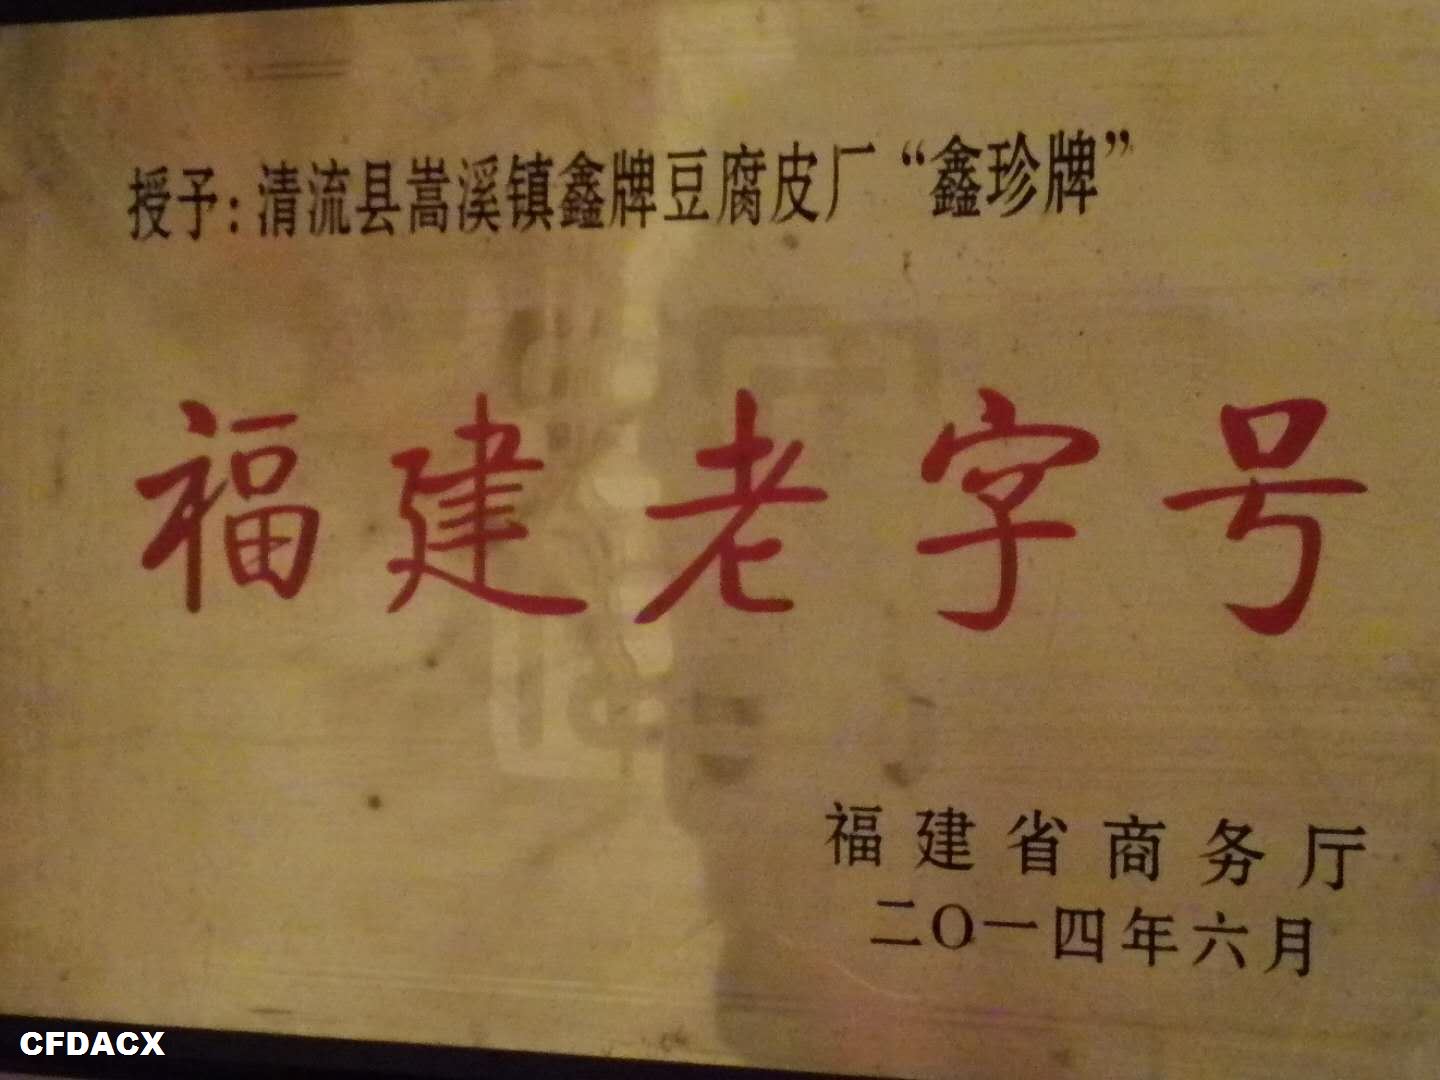 授予：清流县嵩溪镇鑫牌豆腐皮厂“鑫珍牌”
福建老字号
福建省商务厅
二〇一四年六月
CFDACX